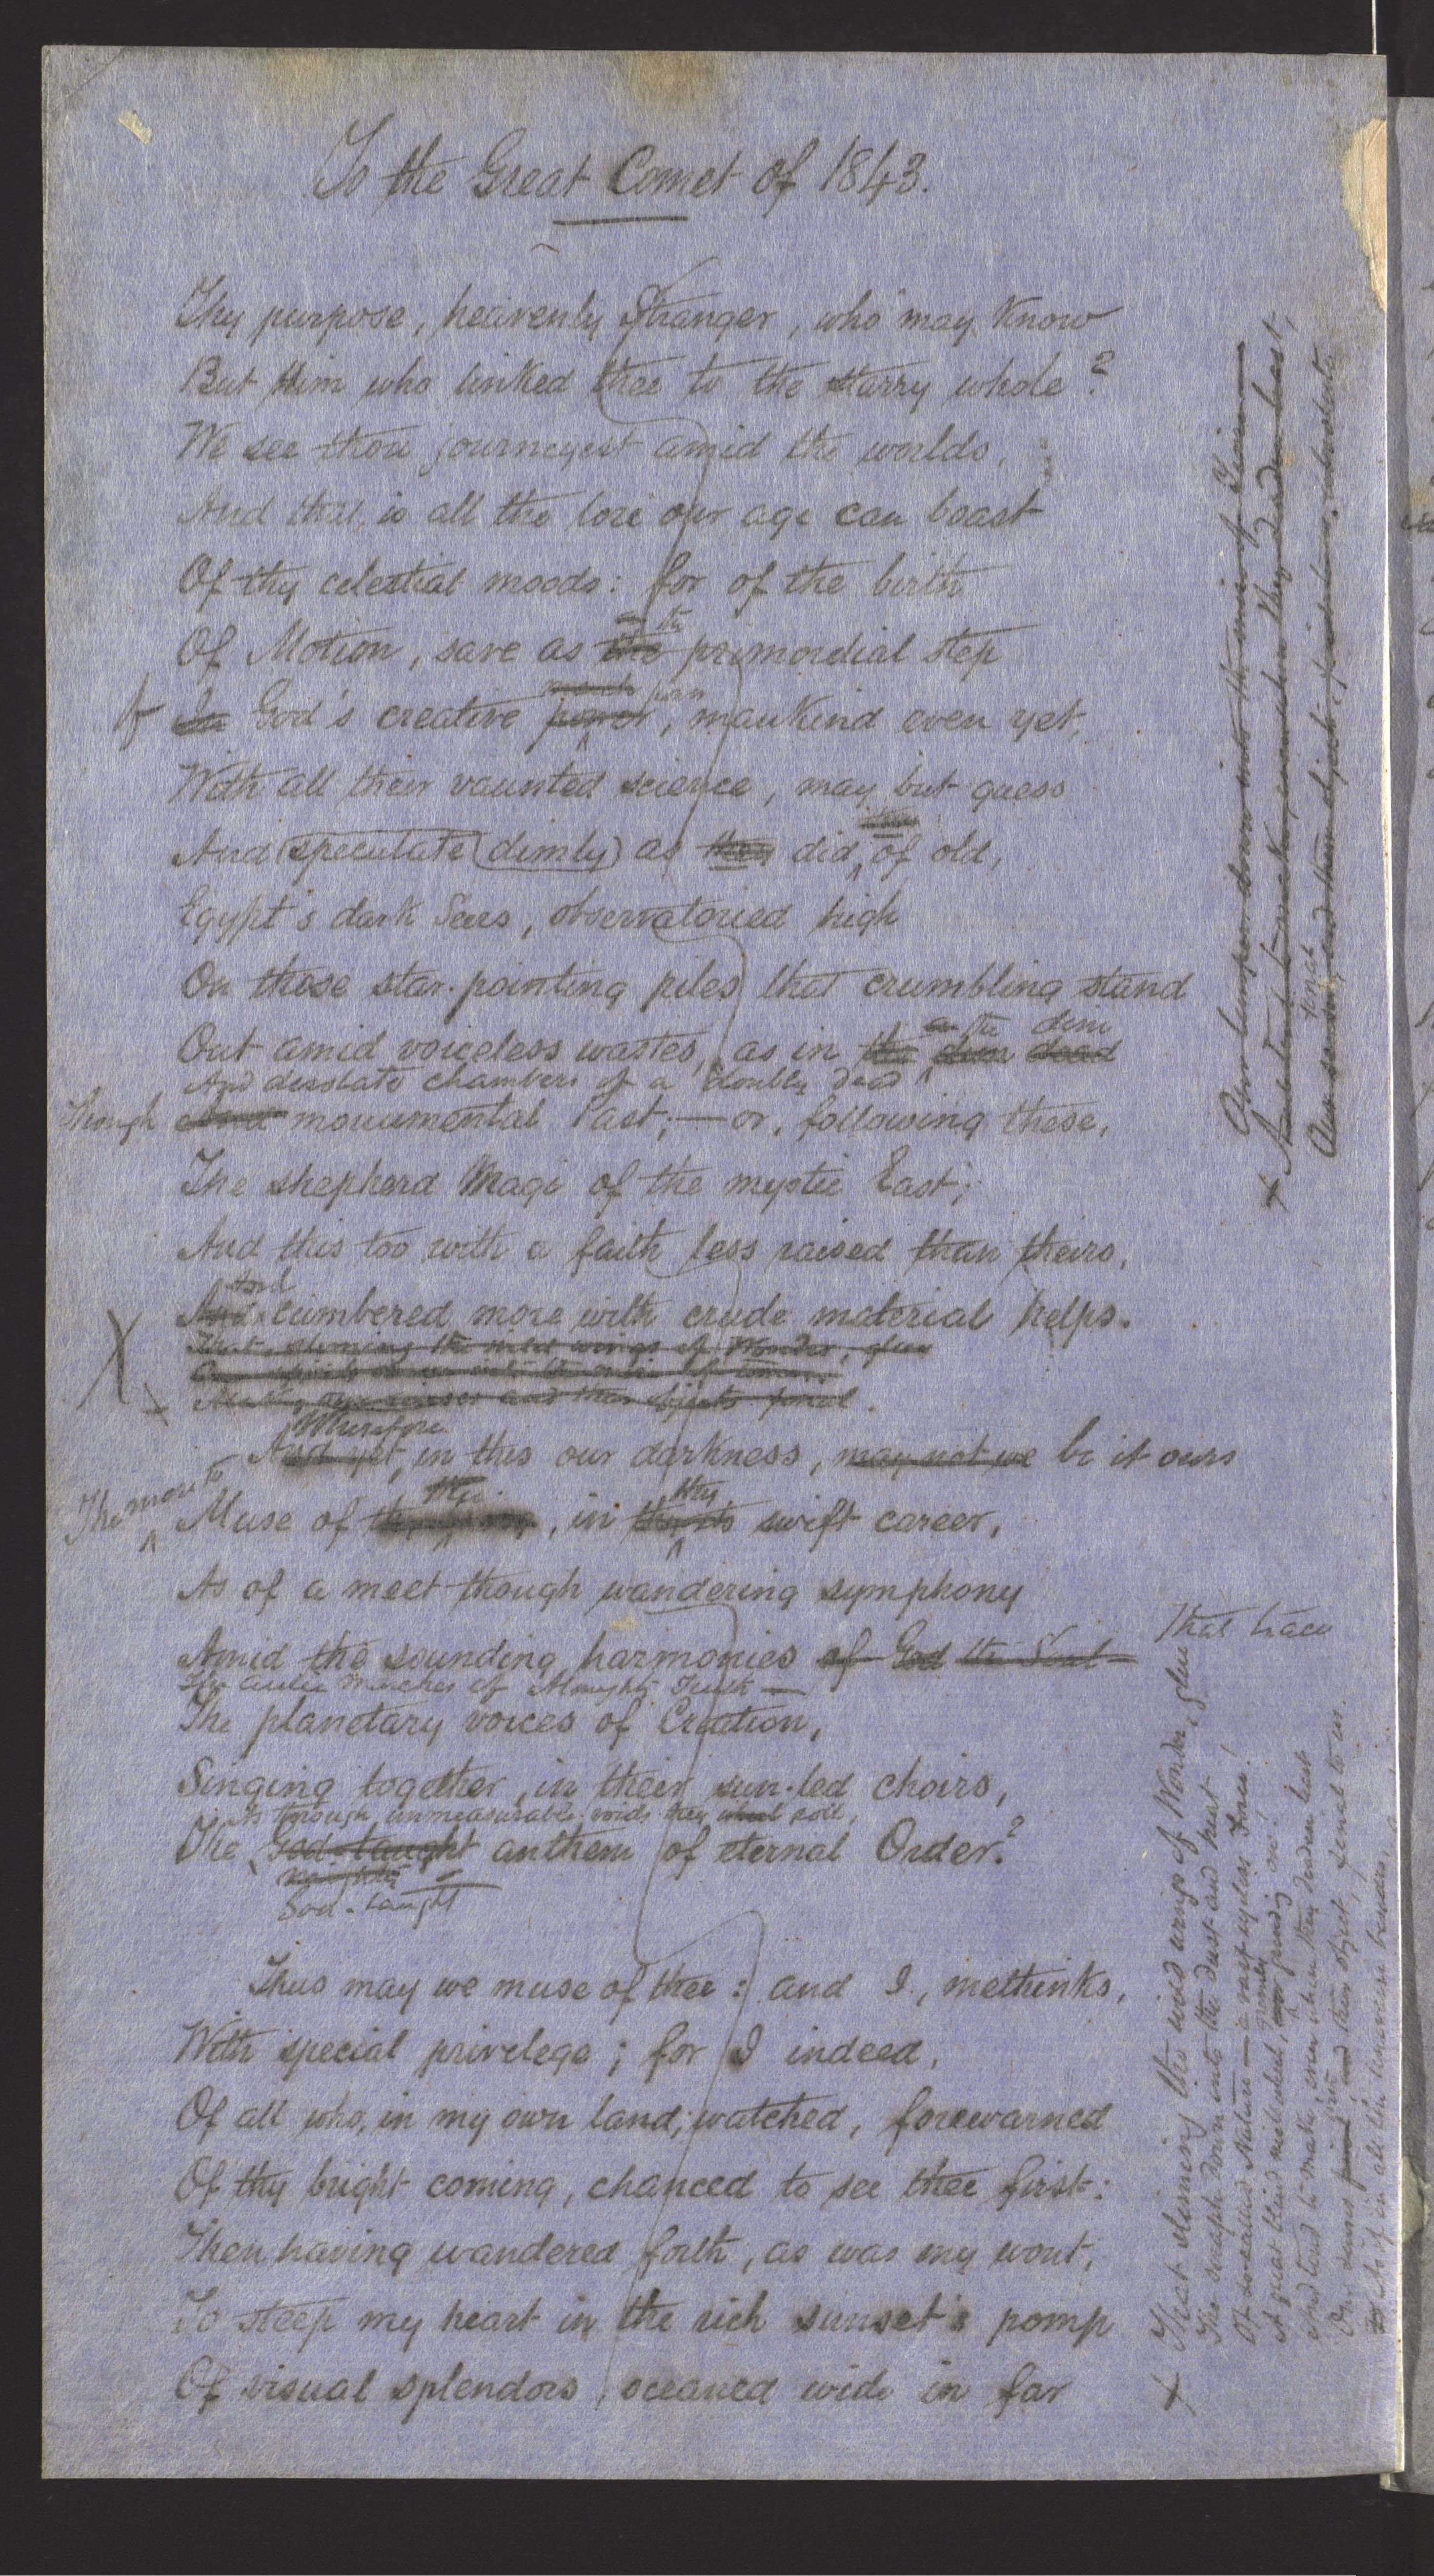 To the Great Comet of 1843.
Thy purpose, heavenly Stranger, who may know
But Him who linked thee to the starry whole?
We see thou journeyest amid the worlds,
And this, is all the lore our age can boast
Of thy celestial moods: for of the birth
the
Of Motion, save as the primordial step
Of In God's creative power, mankind even yet,
With all their vaunted science, may but guess
And (speculate (dimly) as they did, of old,
Egypt's dark Seers, observatoried high
On those star-pointing piles that crumbling stand
the dim
Out amid voiceless wastes, as in the dim dead
And desolate chambers of a doubly dead
Though And monumental Past;—or, following these,
The shepherd Magi of the mystic East;
And this too with a faith less raised than theirs,
And
And cumbered more with crude material helps.
That, sliming the wild wings of Wonder, glue
Our spirits down into the
and their objects final.
Wherefore
And yet, in this our darkness, may not we be it ours
The more to
thee thy
Muse of, in swift career,
As of a meet though wandering symphony
Amid the sounding harmonies of God the Soul—
The outer marches of Almighty Truth—
The planetary voices of Creation,
Singing together, in their sun-led choirs,
As through unmeasurable voids they wheel roll,
The God-taught anthem of eternal Order.?
mighty
God-taught
Thus may we muse of thee: and I, methinks,
With special privelege; for I indeed,
Of all who, in my own land, watched, forewarned
Of thy bright coming, chanced to see thee first:
Then having wandered forth, as was my wont,
To steep my heart in the rich sunset's pomp
Of visual splendors, oceaned wide in far
Our down into the mire of
when they deaden least,
Our senses, and their objects,
final
That
× That sliming the wild wings of Wonder, glue
The seraph down into the dust and rust
Of so-called Nature — a vast eyeless Force!
A great blind mill wheel, grinding on!
grimly
And tend to make, even when they deaden least
Our senses and their object, final to us
As if in all the universe besides,